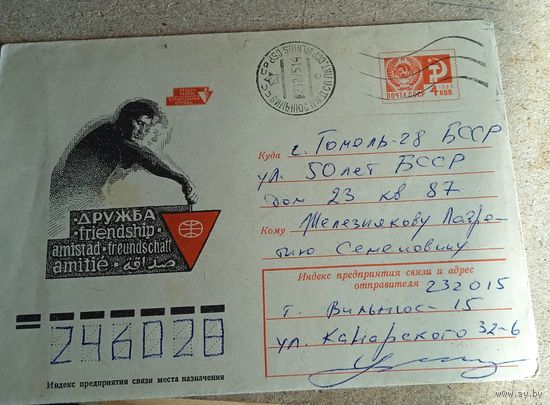 СТУДЕНЧЕСКИЕ
СТРОИТЕЛЬНЫЕ
ОТРЯДЫ
ПОЧТА СССР
1966
4 КОП.
ДРУЖБА
friendship
amistad · freundschaft
amitié · صداقة
Куда г. Гомель-28 БССР
ул. 50 лет БССР
дом 23 кв 87
Кому Железнякову Лавре-
тию Семеновичу
Индекс предприятия связи и адрес
отправителя 232015
г. Вильнюс-15
ул. 32-6
246028
Индекс предприятия связи места назначения
ay.by